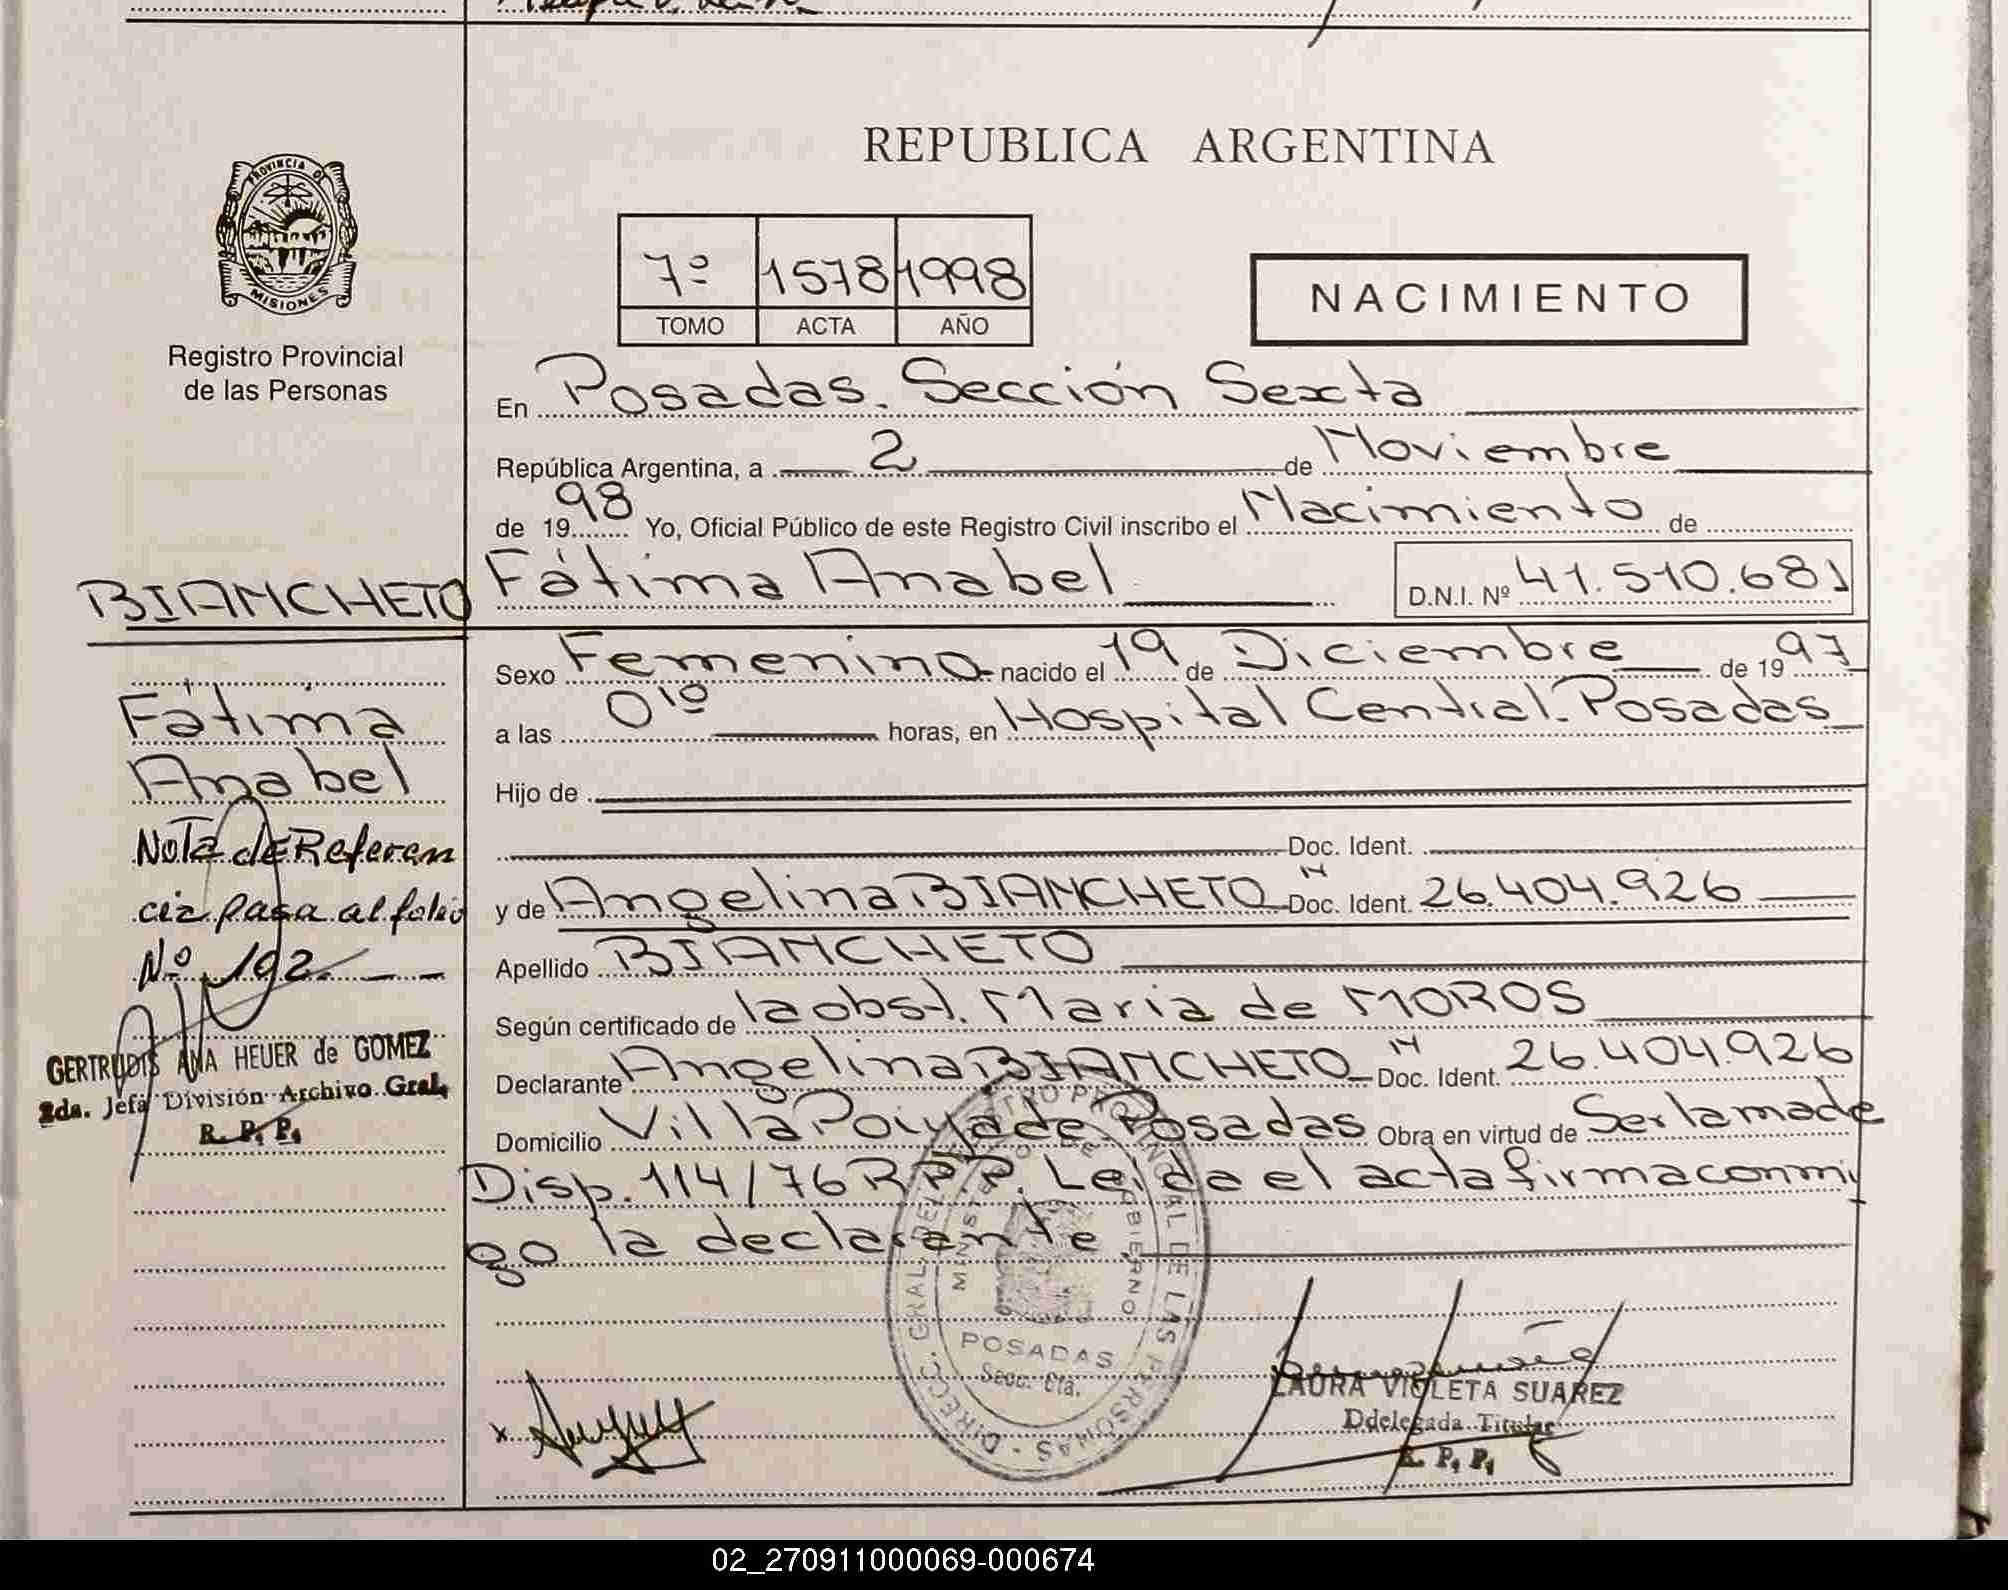 REPUBLICA ARGENTINA
PROVINCIA D
MISIONES
Registro Provincial
de las Personas
7º 1578 1998
TOMO ACTA AÑO
NACIMIENTO
En Posadas. Sección Sexta
República Argentina, a 2 de Noviembre
de 1998 Yo, Oficial Público de este Registro Civil inscribo el Nacimiento de
BIANCHETO Fátima Anabel D.N.I. Nº 41.510.681
Sexo Femenino nacido el 19 de Diciembre de 1997
Fátima
a las 01º horas, en Hospital Central. Posadas
Anabel
Hijo de
Nota de Referen
Doc. Ident.
cia pasa al folio
y de Angelina BIANCHETO N Doc. Ident. 26.404.926
Nº 192
Apellido BIANCHETO
Según certificado de la obst. Maria de MOROS
GERTRUDIS ANA HEUER de GOMEZ
2da. Jefa División Archivo Gral.
R. P. P.
Declarante Angelina BIANCHETO N Doc. Ident. 26.404.926
Domicilio Villa Poujade Posadas Obra en virtud de Ser la madre
Disp. 114/76 R.P.P. Leida el acta firma conmi
go la declarante
DIRECC. GRAL. DEL REGISTRO PROVINCIAL DE LAS PERSONAS
MINISTERIO DE GOBIERNO
POSADAS
Secc. 6ta.
x
LAURA VIOLETA SUAREZ
Ddelegada Titular
R. P. P.
02_270911000069-000674